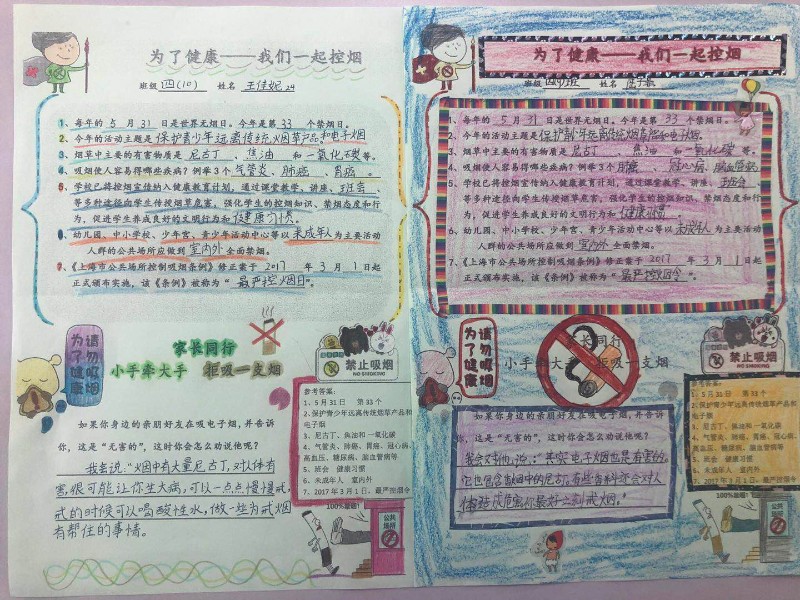 为了健康——我们一起控烟
班级 四(10) 姓名 王佳妮 24
1、每年的 5 月 31 日是世界无烟日。今年是第 33 个禁烟日。
2、今年的活动主题是 保护青少年远离传统烟草产品和电子烟
3、烟草中主要的有害物质是 尼古丁 、 焦油 和 一氧化碳 等。
4、吸烟使人容易得哪些疾病？例举3个 气管炎 、 肺癌 、 胃癌 。
5、学校已将控烟宣传纳入健康教育计划，通过课堂教学、讲座、班会
等多种途径向学生传授烟草危害，强化学生的控烟知识、禁烟态度和行
为，促进学生养成良好的文明行为和 健康习惯。
6、幼儿园、中小学校、少年宫、青少年活动中心等以 未成年人 为主要活动
人群的公共场所应做到 室内外 全面禁烟。
7、《上海市公共场所控制吸烟条例》修正案于 2017 年 3 月 1 日起
正式颁布实施，该《条例》被称为“ 最严控烟日 ”。
请勿吸烟
为了健康
家长同行
小手牵大手 拒吸一支烟
禁止吸烟
NO SMOKING
如果你身边的亲朋好友在吸电子烟，并告诉
你，这是“无害的”，这时你会怎么劝说他呢？
我会说：“烟中有大量尼古丁，对人体有
害，很可能让你生大病，可以一点点慢慢戒，
戒的时候可以喝酸性水，做一些为戒烟
有帮住的事情。
参考答案：
1、5月31日 第33个
2、保护青少年远离传统烟草产品和
电子烟
3、尼古丁、焦油和一氧化碳
4、气管炎、肺癌、胃癌、冠心病、
高血压、糖尿病、脑血管病等
5、班会 健康习惯
6、未成年人 室内外
7、2017年3月1日、最严控烟令
100%禁烟！
公共场所
为了健康——我们一起控烟
班级 姓名
1、每年的 5 月 31 日是世界无烟日。今年是第 33 个禁烟日。
2、今年的活动主题是 保护青少年远离传统烟草产品和电子烟。
3、烟草中主要的有害物质是 尼古丁 、 焦油 和 一氧化碳 等。
4、吸烟使人容易得哪些疾病？例举3个 肺癌 、 冠心病 、 脑血管病
5、学校已将控烟宣传纳入健康教育计划，通过课堂教学、讲座、班会
等多种途径向学生传授烟草危害，强化学生的控烟知识、禁烟态度和行
为，促进学生养成良好的文明行为和 健康习惯 。
6、幼儿园、中小学校、少年宫、青少年活动中心等以 未成年人 为主要活动
人群的公共场所应做到 室内外 全面禁烟。
7、《上海市公共场所控制吸烟条例》修正案于 2017 年 3 月 1 日起
正式颁布实施，该《条例》被称为“ 最严控烟令 ”。
请勿吸烟
为了健康
家长同行
小手牵大手 拒吸一支烟
禁止吸烟
NO SMOKING
如果你身边的亲朋好友在吸电子烟，并告诉
你，这是“无害的”，这时你会怎么劝说他呢？
我会对他说：“其实电子烟也是有害的，
它也包含 烟中的尼古丁，有些 还会对人
体造成危害你最好立刻戒烟。”
参考答案：
1、5月31日 第33个
2、保护青少年远离传统烟草产品和
电子烟
3、尼古丁、焦油和一氧化碳
4、气管炎、肺癌、胃癌、冠心病、
高血压、糖尿病、脑血管病等
5、班会 健康习惯
6、未成年人 室内外
7、2017年3月1日、最严控烟令
100%禁烟！
公共场所